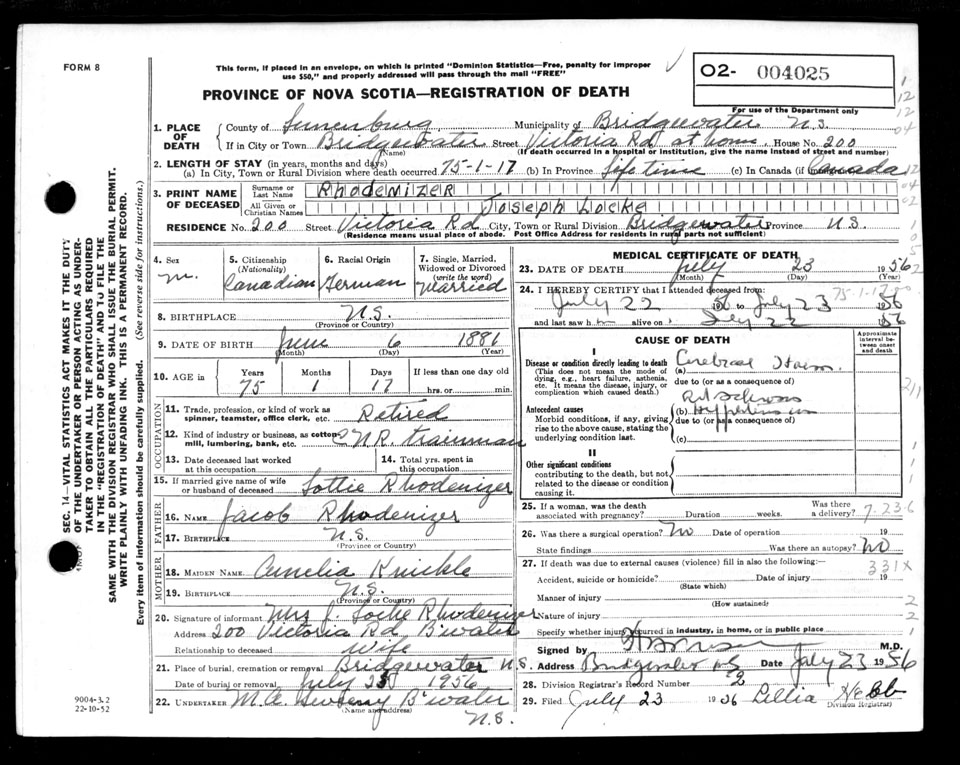 FORM 8
This form, if placed in an envelope, on which is printed "Dominion Statistics—Free, penalty for improper
use $50," and properly addressed will pass through the mail "FREE"
O2- 004025
For use of the Department only
PROVINCE OF NOVA SCOTIA—REGISTRATION OF DEATH
1. PLACE OF DEATH
County of Lunenburg Municipality of Bridgewater N.S.
If in City or Town Bridgewater Street Victoria Rd at home House No. 200
(Name) (If death occurred in a hospital or institution, give the name instead of street and number)
2. LENGTH OF STAY (in years, months and days)
(a) In City, Town or Rural Division where death occurred 75-1-17 (b) In Province Life time (c) In Canada (if Canada
3. PRINT NAME OF DECEASED
Surname or Last Name Rhodenizer
All Given or Christian Names Joseph Locke
RESIDENCE No. 200 Street Victoria Rd City, Town or Rural Division Bridgewater Province N.S.
(Residence means usual place of abode. Post Office Address for residents in rural parts not sufficient)
4. Sex
M.
5. Citizenship
(Nationality)
Canadian
6. Racial Origin
German
7. Single, Married,
Widowed or Divorced
(write the word)
Married
8. BIRTHPLACE N.S.
(Province or Country)
9. DATE OF BIRTH June 6 1881
(Month) (Day) (Year)
10. AGE in
Years Months Days If less than one day old
75 1 17 hrs. or min.
OCCUPATION
11. Trade, profession, or kind of work as
spinner, teamster, office clerk, etc. Retired
12. Kind of industry or business, as cotton
mill, lumbering, bank, etc. CNR trainman
13. Date deceased last worked
at this occupation
14. Total yrs. spent in
this occupation
15. If married give name of wife
or husband of deceased Lottie Rhodenizer
FATHER
16. NAME Jacob Rhodenizer
17. BIRTHPLACE N.S.
(Province or Country)
MOTHER
18. MAIDEN NAME Amelia Knickle
19. BIRTHPLACE N.S.
(Province or Country)
20. Signature of informant Mrs J. Locke Rhodenizer
Address 200 Victoria Rd B'water
Relationship to deceased Wife
21. Place of burial, cremation or removal Bridgewater N.S.
Date of burial or removal July 25 1956
22. UNDERTAKER M.A. B'water
(Name and address)
N.S.
MEDICAL CERTIFICATE OF DEATH
23. DATE OF DEATH July 23 1956
(Month) (Day) (Year)
24. I HEREBY CERTIFY that I attended deceased from:
75-1-17
July 22 56 to July 23 1956
and last saw h m alive on July 22 1956
CAUSE OF DEATH
Approximate interval between onset and death
I
Disease or condition directly leading to death
(This does not mean the mode of
dying, e.g., heart failure, asthenia,
etc. It means the disease, injury, or
complication which caused death.)
(a) Cerebral Haem.
due to (or as a consequence of)
Antecedent causes
Morbid conditions, if any, giving
rise to the above cause, stating the
underlying condition last.
(b)
due to (or as a consequence of)
(c)
II
Other significant conditions
contributing to the death, but not
related to the disease or condition
causing it.
25. If a woman, was the death
associated with pregnancy? Duration weeks. Was there
a delivery?
7-23-6
26. Was there a surgical operation? No Date of operation 19
State findings Was there an autopsy? No
27. If death was due to external causes (violence) fill in also the following:—
331X
Accident, suicide or homicide? Date of injury 19
(State which)
Manner of injury
(How sustained)
Nature of injury
Specify whether injury occurred in industry, in home, or in public place
Signed by M.D.
Address Bridgewater NS Date July 23 1956
28. Division Registrar's Record Number 2
29. Filed July 23 1956 Lillia Hebb
(Division Registrar)
SEC. 14—VITAL STATISTICS ACT MAKES IT THE DUTY
OF THE UNDERTAKER OR PERSON ACTING AS UNDER-
TAKER TO OBTAIN ALL THE PARTICULARS REQUIRED
IN THE "REGISTRATION OF DEATH" AND TO FILE THE
SAME WITH THE DIVISION REGISTRAR WHO SHALL ISSUE THE BURIAL PERMIT.
WRITE PLAINLY WITH UNFADING INK. THIS IS A PERMANENT RECORD.
Every item of information should be carefully supplied. (See reverse side for instructions.)
9004-3.2
22-10-52